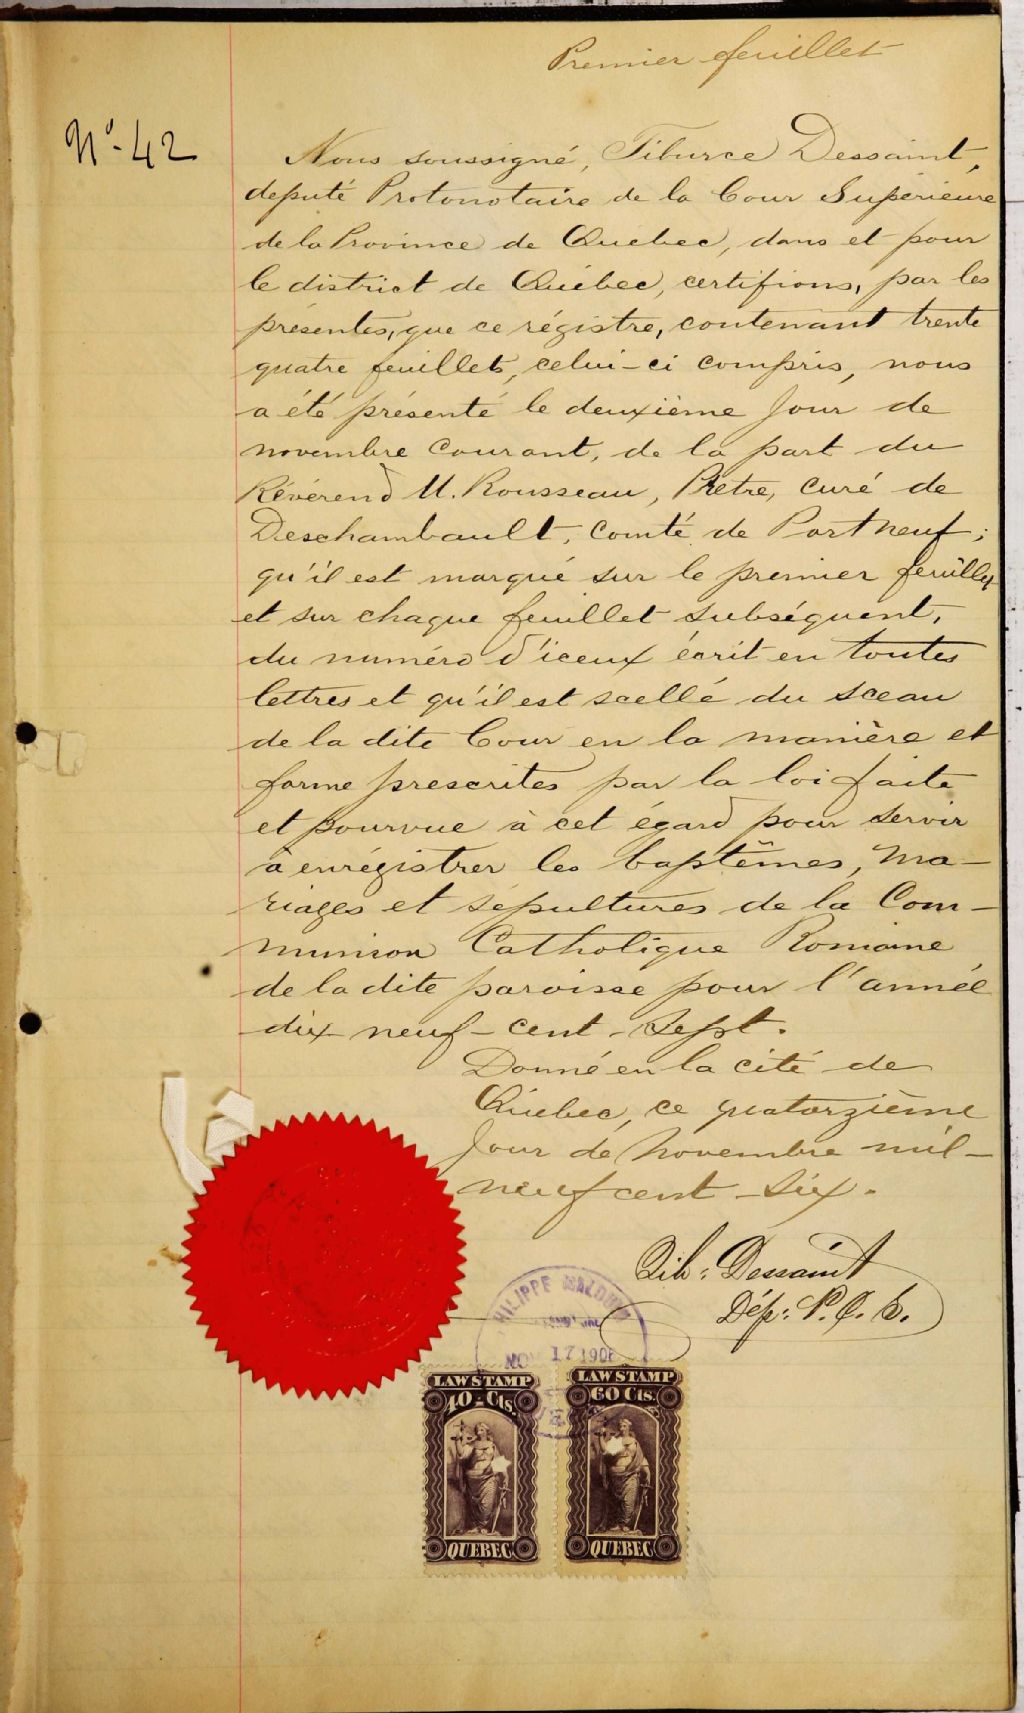 Premier feuillet
No. 42
Nous soussigné, Tiburce Dessaint,
député Protonotaire de la Cour Supérieure
de la Province de Quebec, dans et pour
le district de Québec, certifions, par les
présentes, que ce régistre, contenant trente
quatre feuillets, celui-ci compris, nous
a été présenté le deuxième jour de
novembre courant, de la part du
Révérend U. Rousseau, Prêtre, curé de
Deschambault, comté de Portneuf;
qu'il est marqué sur le premier feuillet
et sur chaque feuillet subséquent,
du numéro d'iceux écrit en toutes
lettres et qu'il est scellé du sceau
de la dite Cour en la manière et
forme prescrites par la loi faite
et pourvue à cet égard pour servir
à enrégistrer les baptêmes, ma-
riages et sépultures de la Com-
munion Catholique Romaine
de la dite paroisse pour l'année
dix neuf-cent-sept.
Donné en la cité de
Québec, ce quatorzième
jour de novembre mil-
neuf cent-six.
Tib: Dessaint
Dép: P. C. S.
PHILIPPE
NOV 17 1906
LAW STAMP
40-Cts.
QUEBEC
LAW STAMP
60 Cts.
QUEBEC